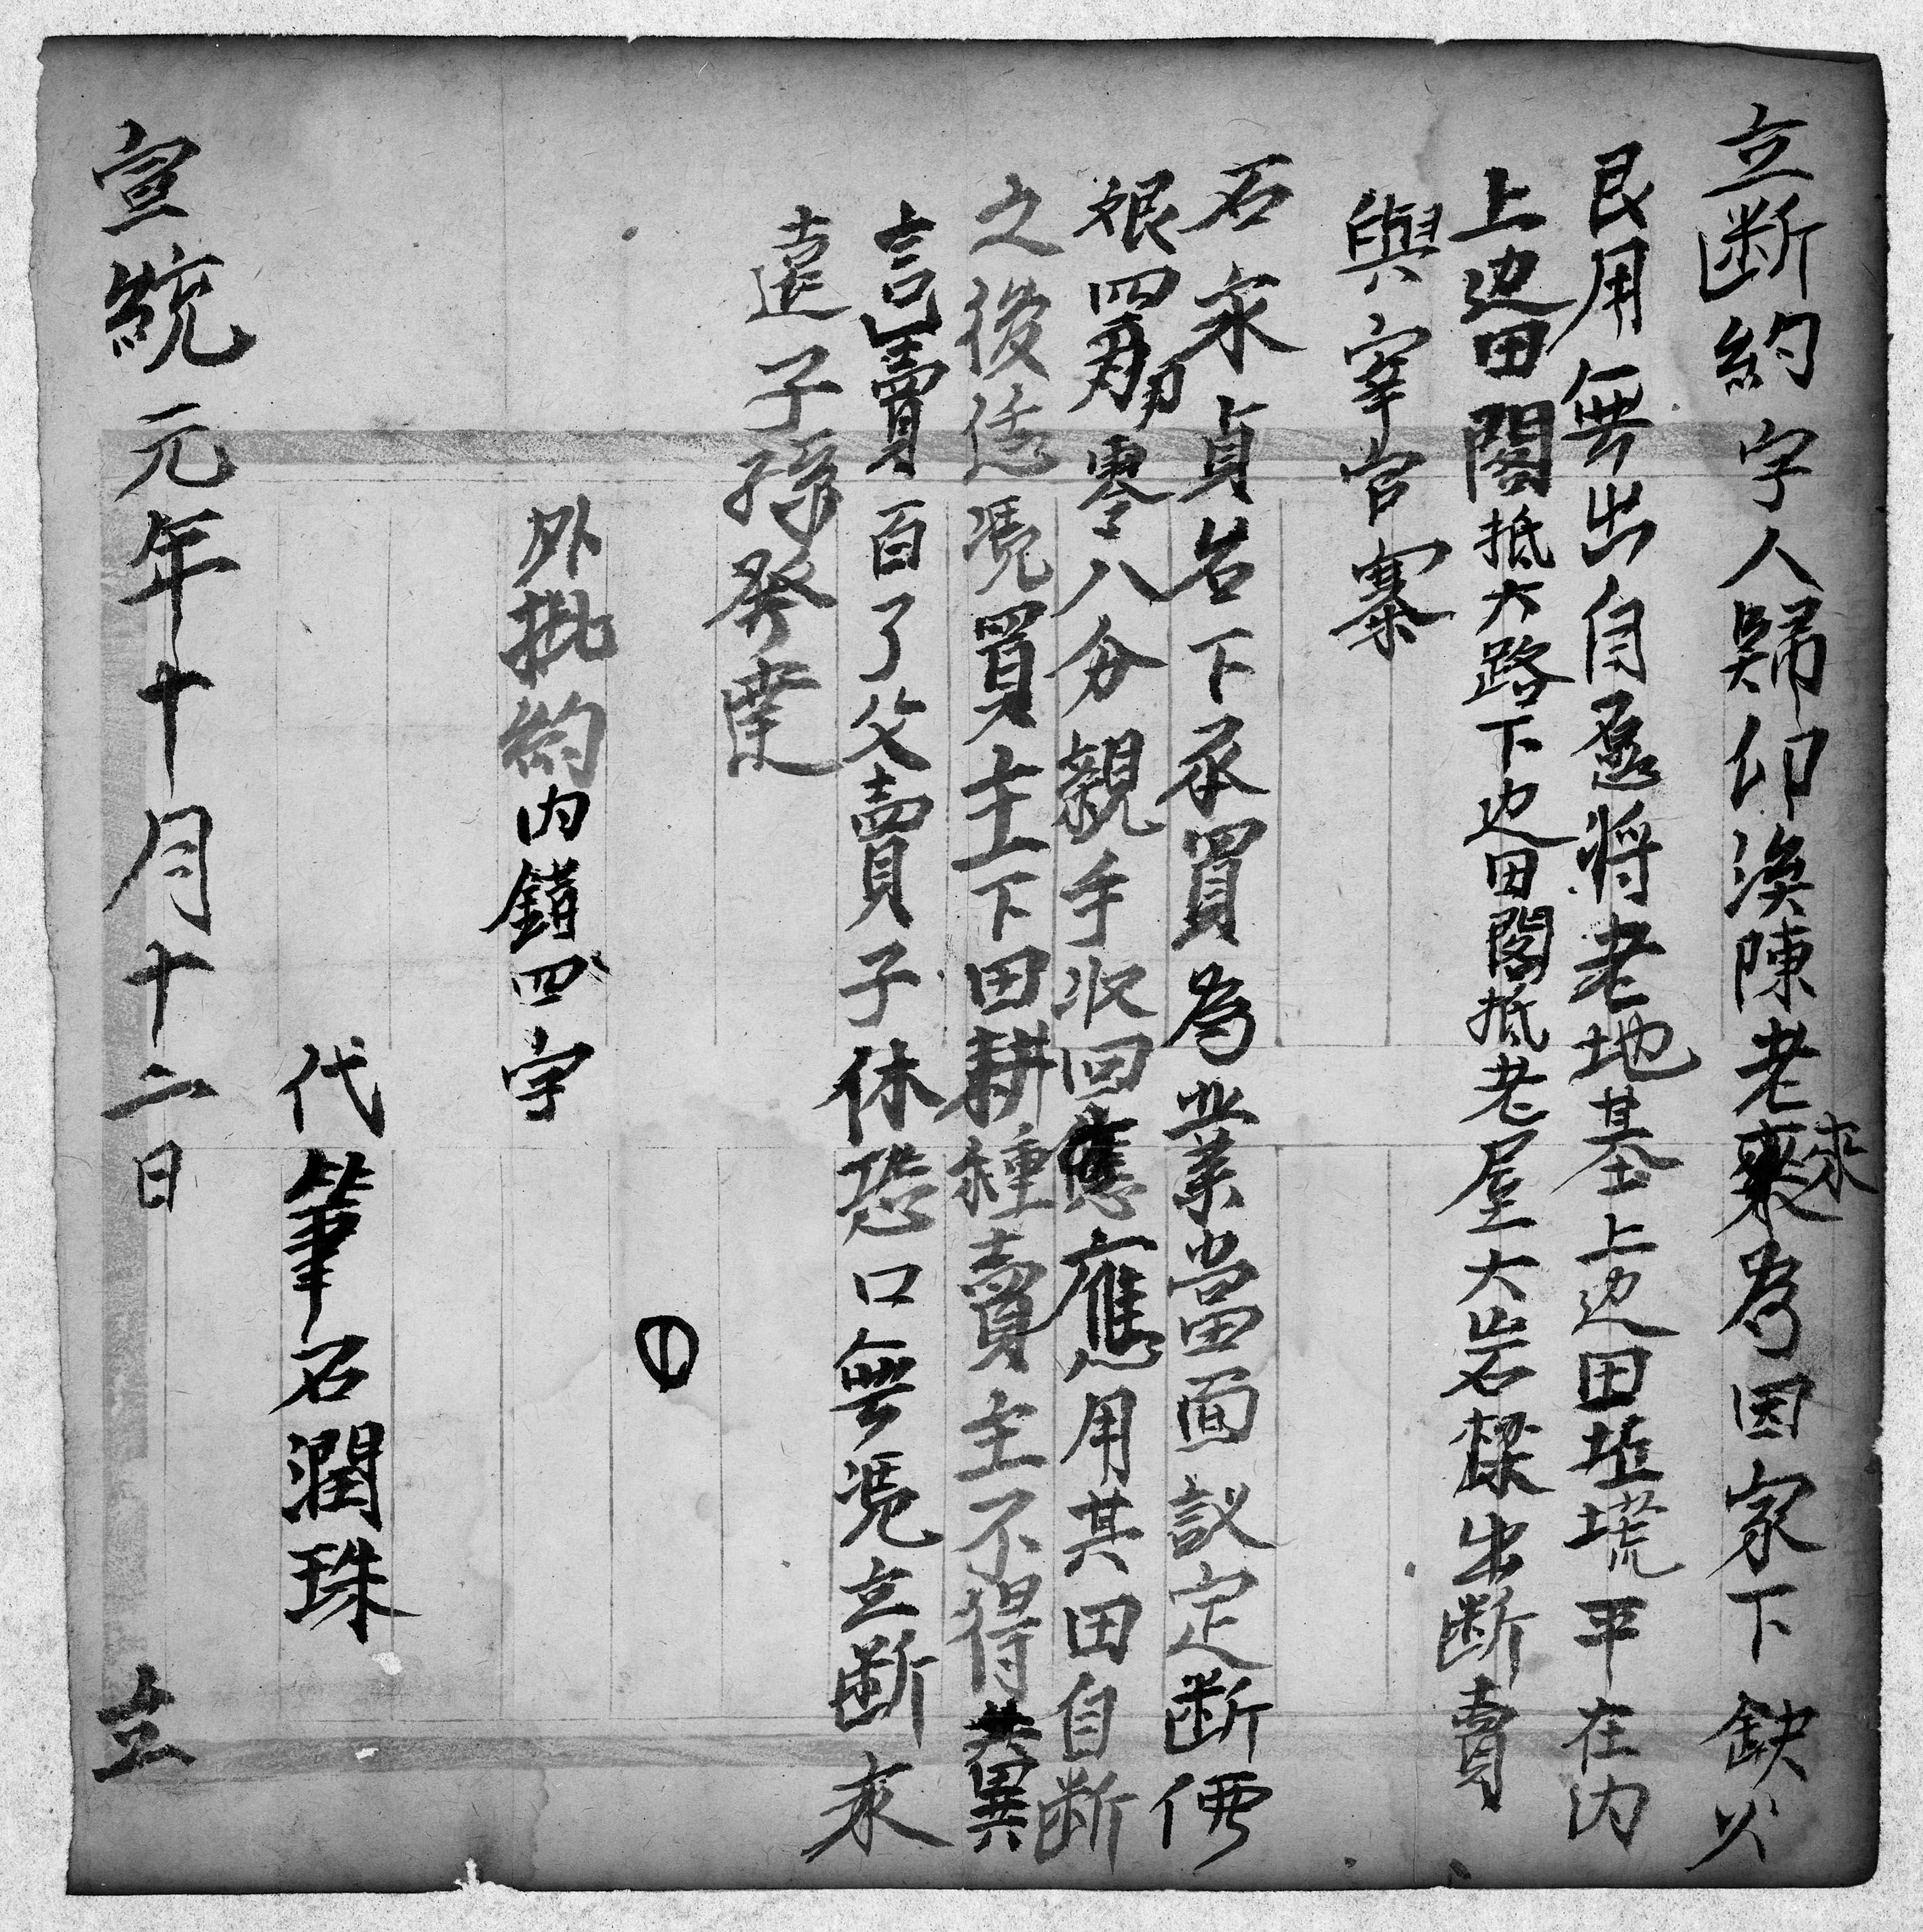 立断約字人歸仰渙陳老來為因家下缺少
艮用無出自愿将老地基上边田坵塃平在内
上边田閣抵大路下边田閣抵老屋大岩樑出断賣
與宰官寨
石永貞名下承買為業當面議定断價
艮四両刃零八分親手收回應用其田自断
之後恁凴買主下田耕種賣主不得異
言賣百了父賣子休恐口無凴立断永
遠子孫發達
外批約内錯四字
代筆石潤珠
宣統元年十月十二日 立